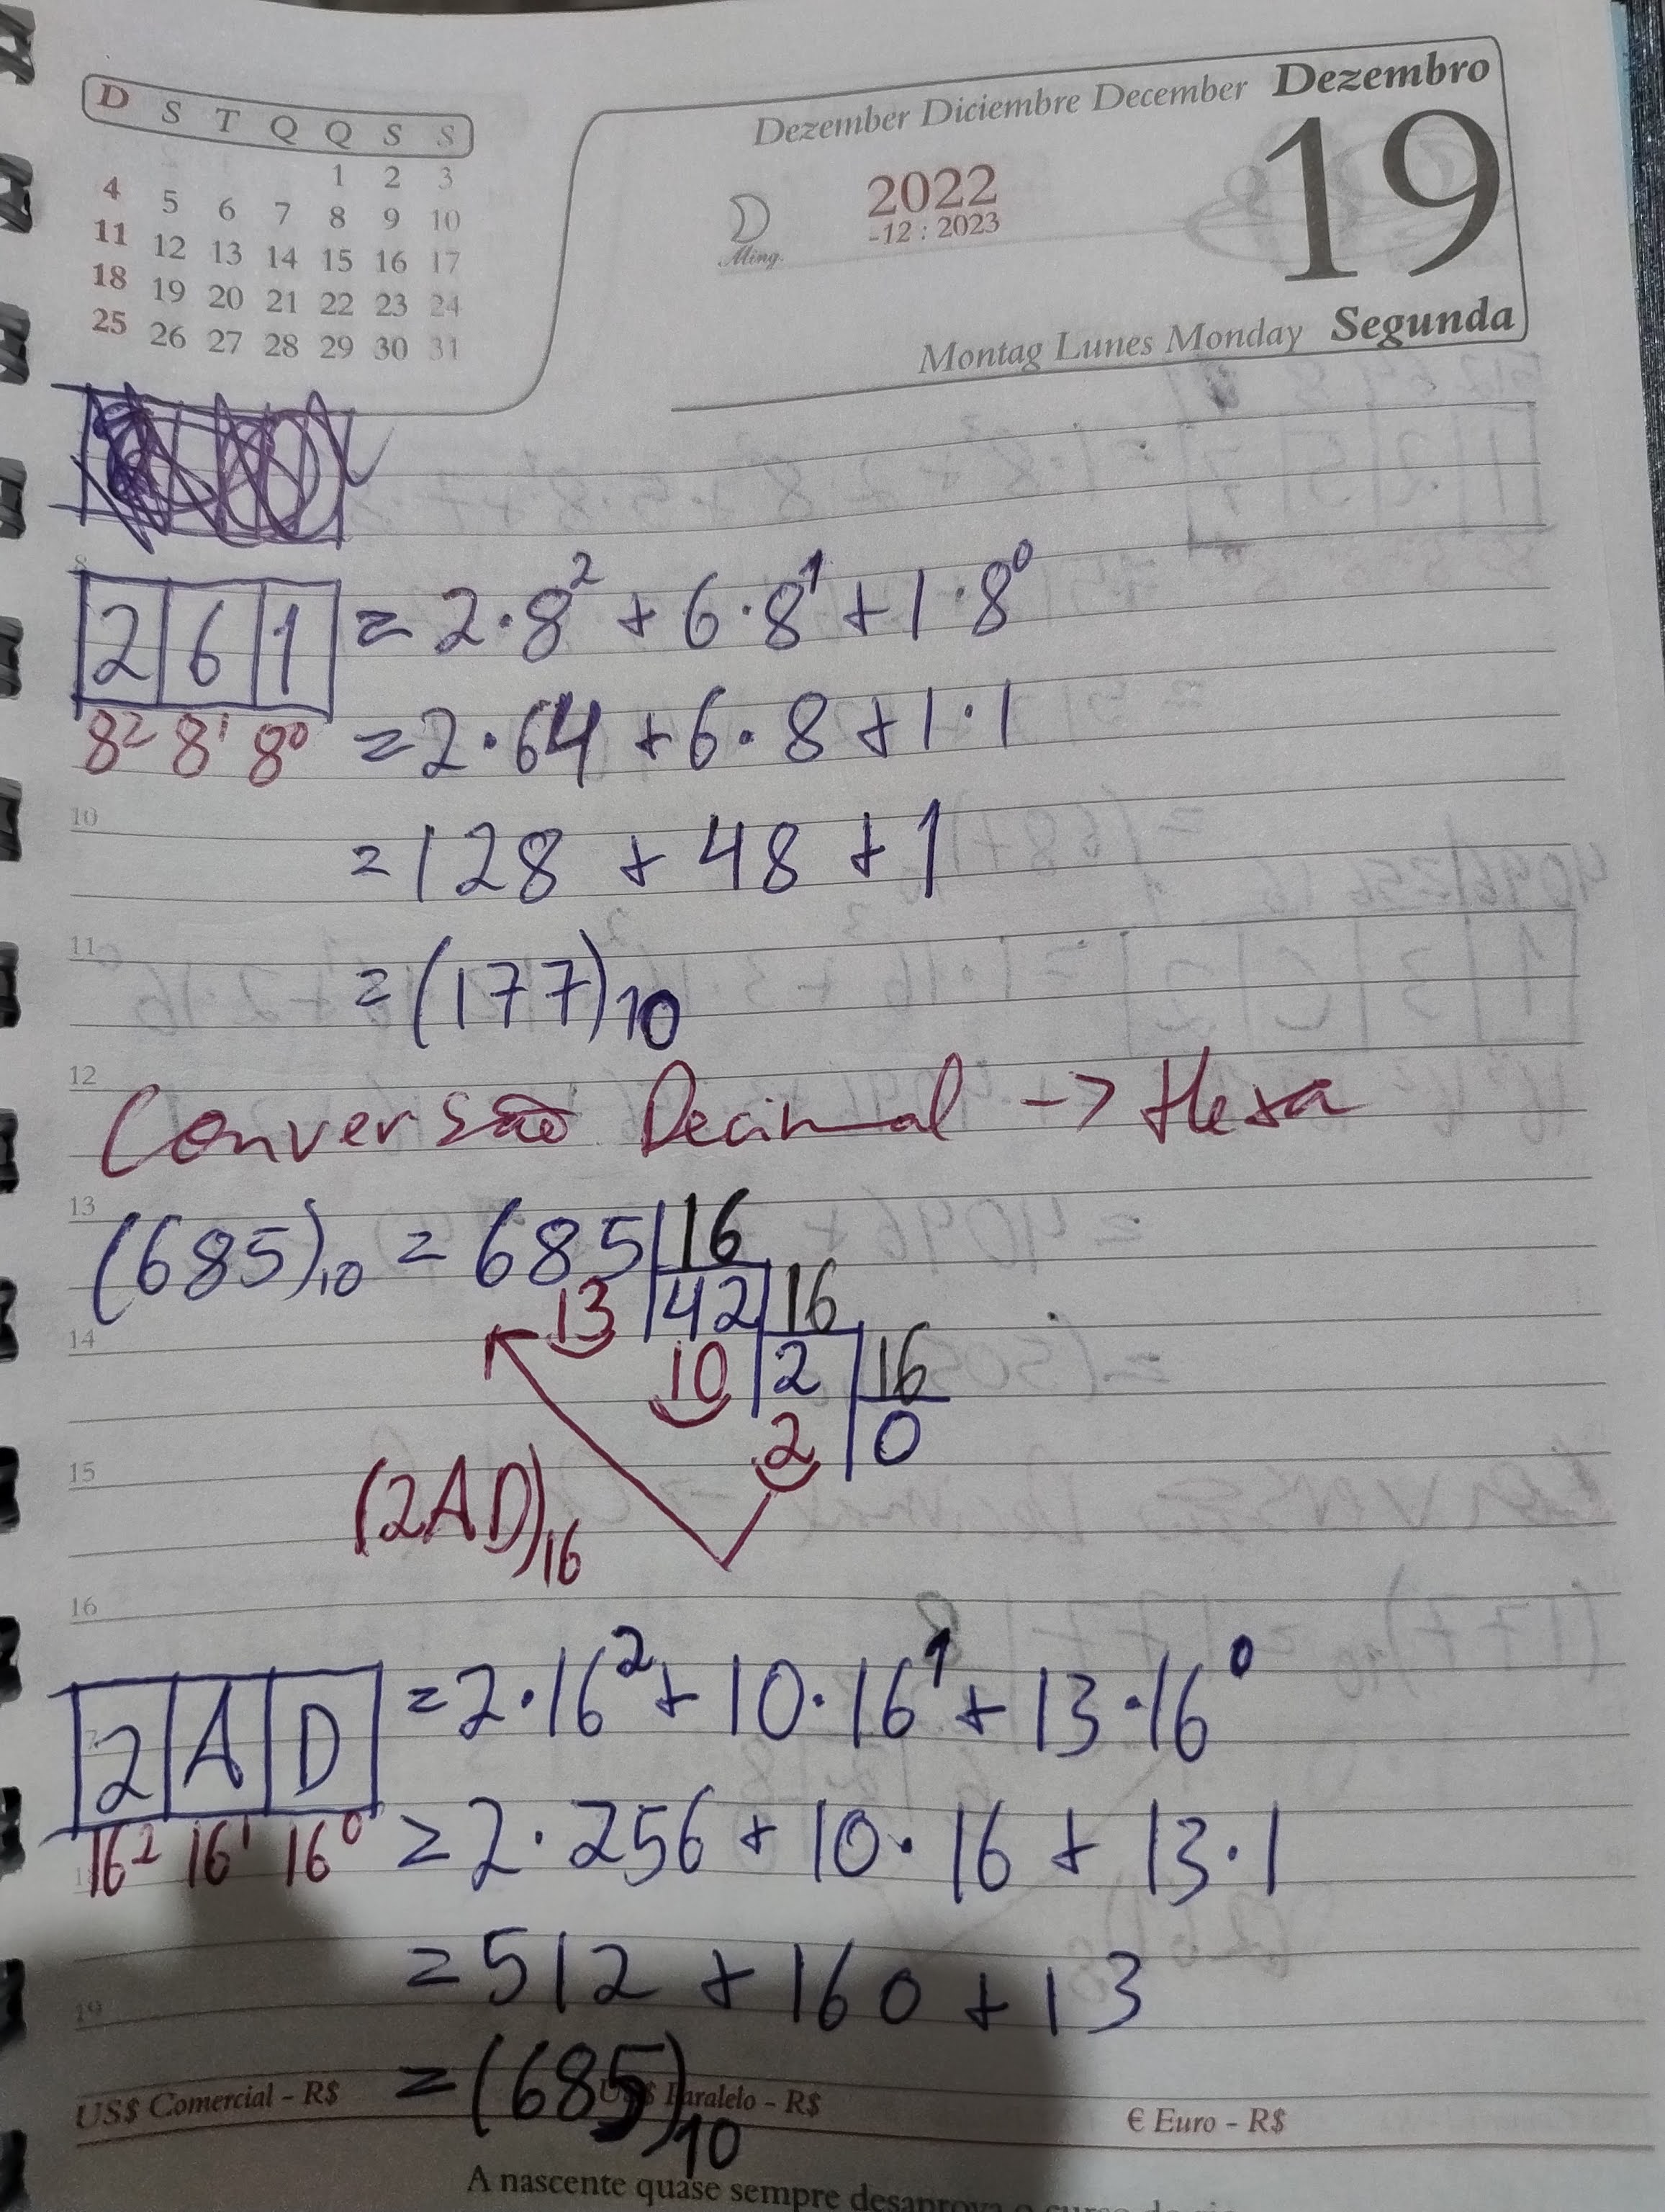 D S T Q Q S S
1 2 3
4 5 6 7 8 9 10
11 12 13 14 15 16 17
18 19 20 21 22 23 24
25 26 27 28 29 30 31
Dezember Diciembre December Dezembro
19
2022
-12 : 2023
Ming.
Montag Lunes Monday Segunda
8
2 6 1 = 2·8² + 6·8¹ + 1·8⁰
8² 8¹ 8⁰ = 2·64 + 6·8 + 1·1
10
= 128 + 48 + 1
11
= (177)₁₀
12
Conversão Decimal -> Hexa
13
(685)₁₀ = 685 16
13 42 16
14
10 2 16
2 0
15
(2AD)₁₆
16
2 A D = 2·16² + 10·16¹ + 13·16⁰
16² 16¹ 16⁰ = 2·256 + 10·16 + 13·1
= 512 + 160 + 13
19
= (685)₁₀
US$ Comercial - R$ US$ Paralelo - R$ € Euro - R$
A nascente quase sempre desaprova o curso do rio